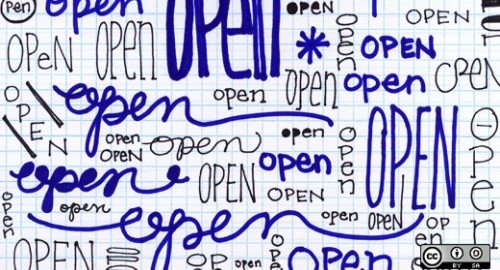 Pen
open
OPEN
open
OPEN
open
OPEN
OPEN
open
OPEN
open
open
open
open
OPEN
open
open
OPEN
open
open
OPEN
open
open
OPEN
OPEN
OPEN
open
open
open
open
open
open
OPEN
OPEN
open
OPEN
open
open
OPEN
cc
BY SA